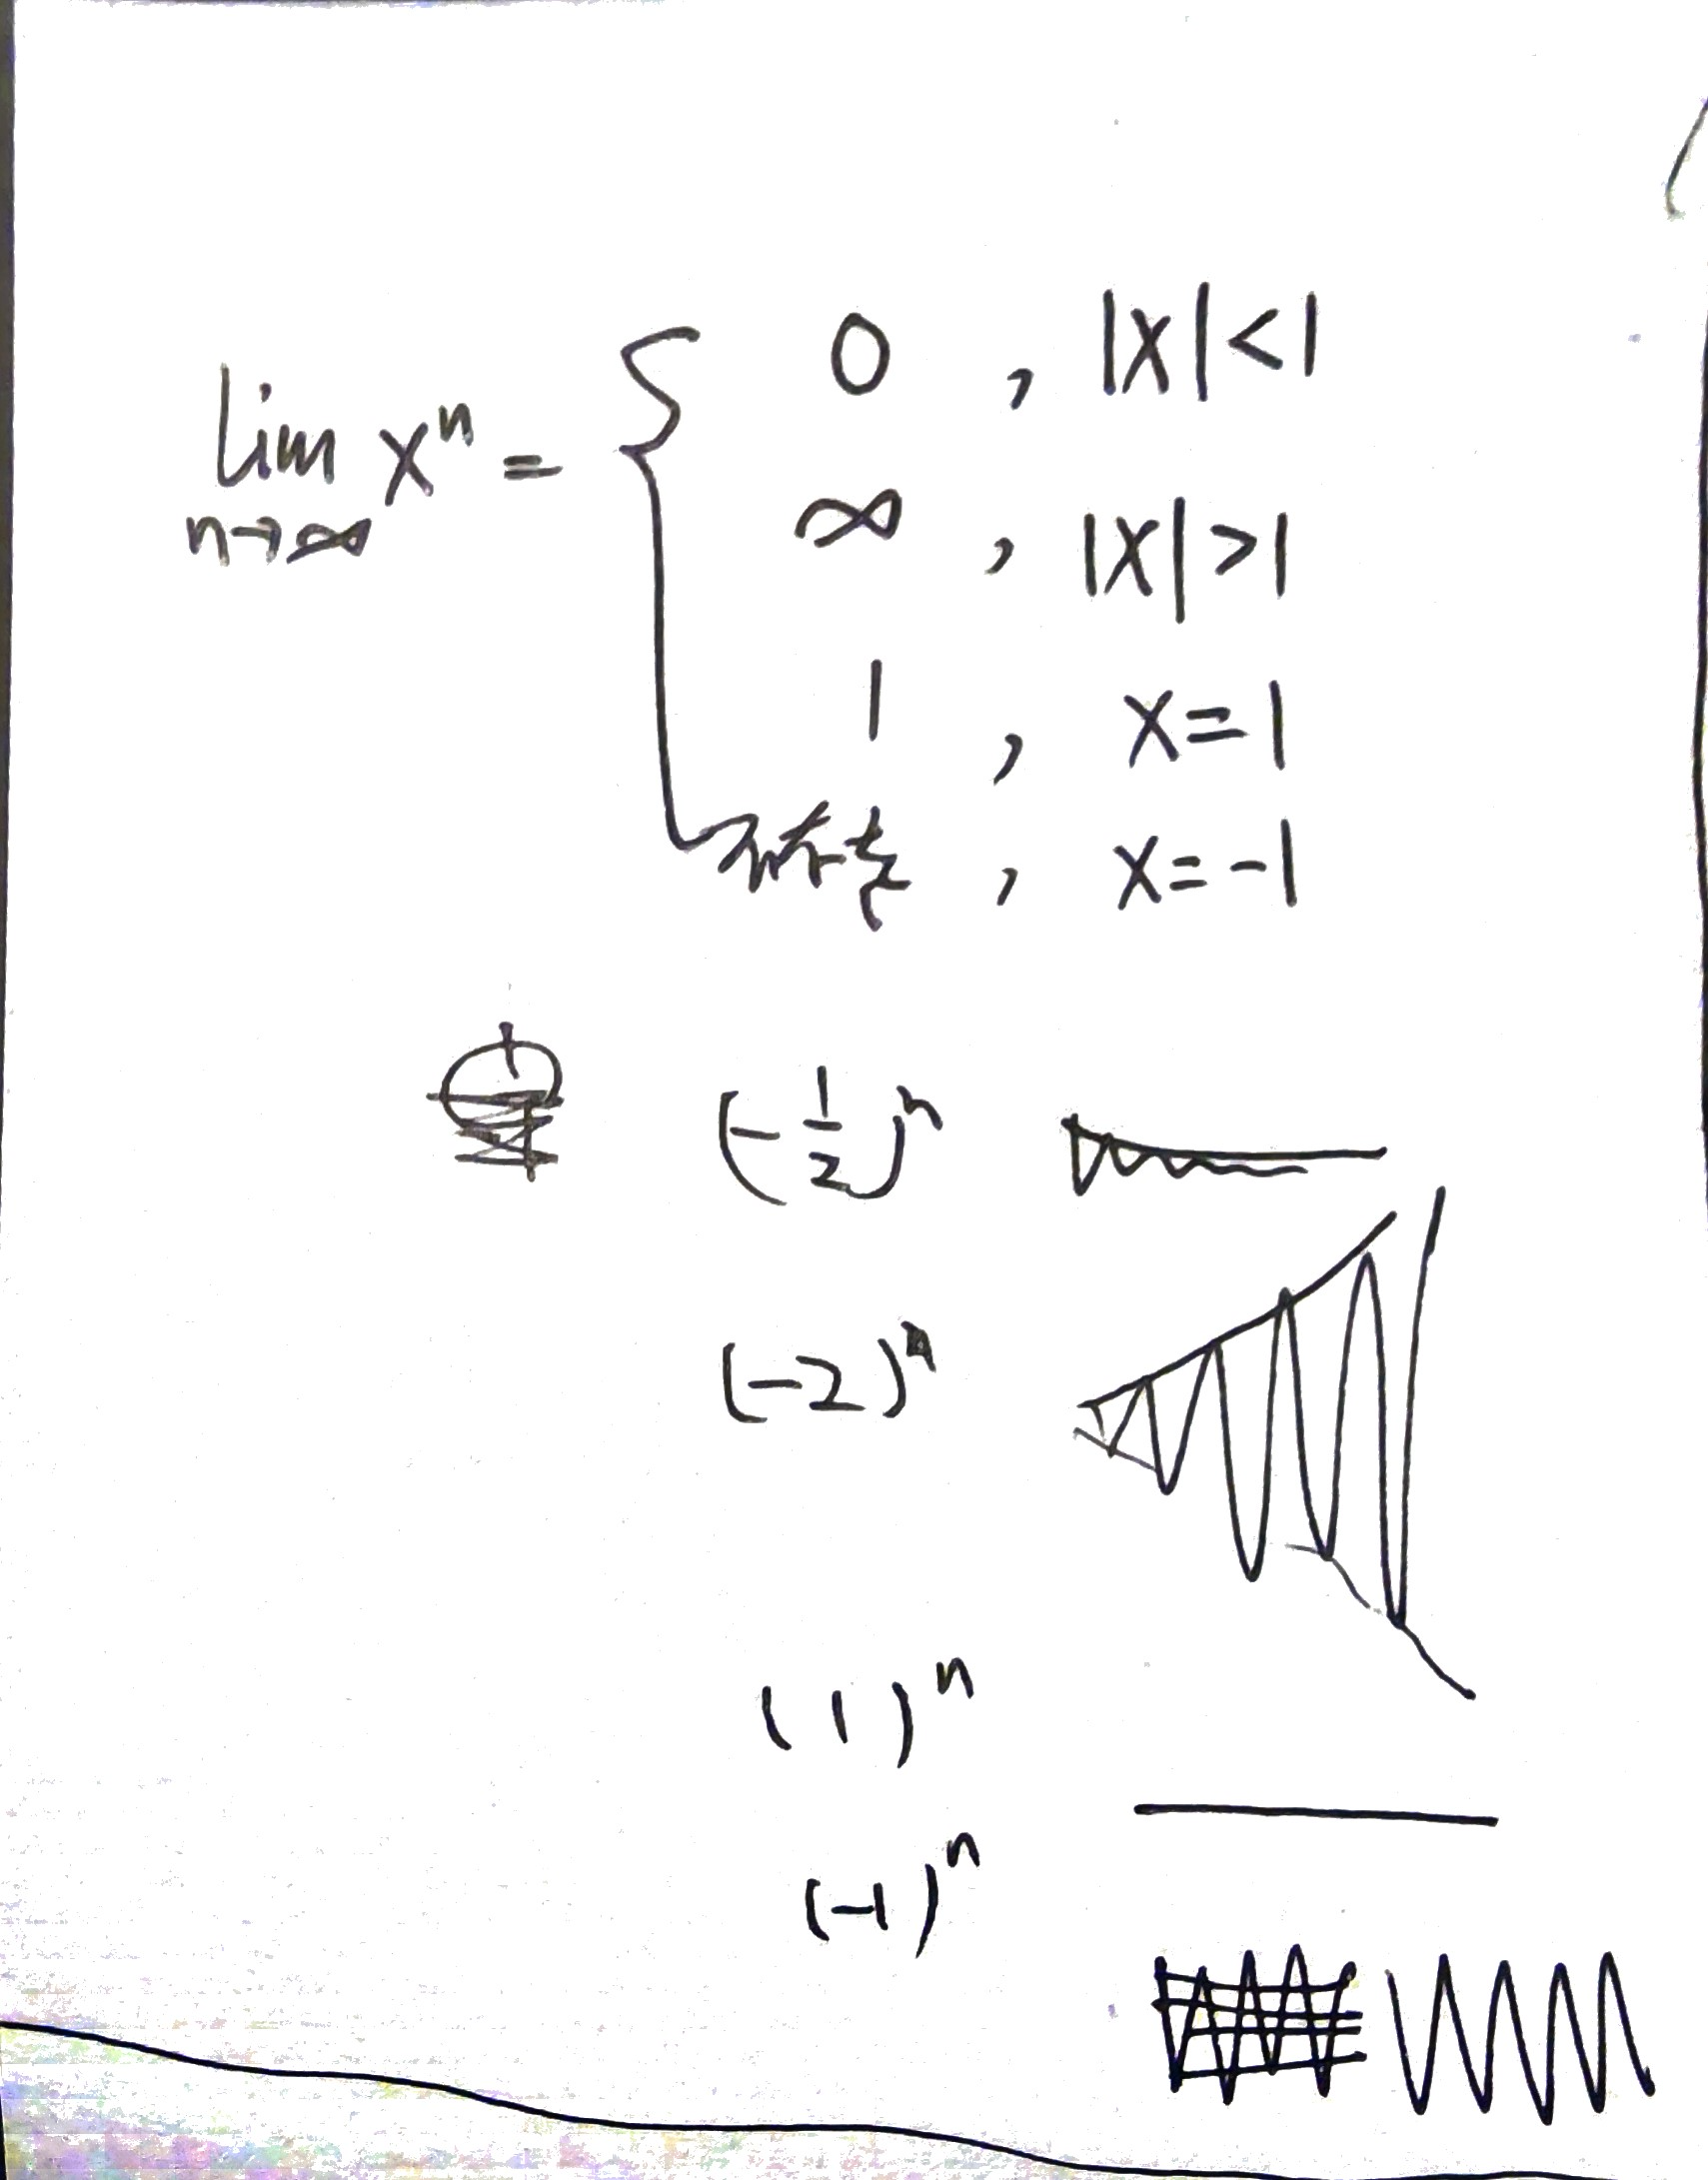 lim x^n = { 0 , |x|<1
n→∞
∞ , |x|>1
1 , x=1
不存在 , x=-1
(-1/2)^n
(-2)^n
(1)^n
(-1)^n